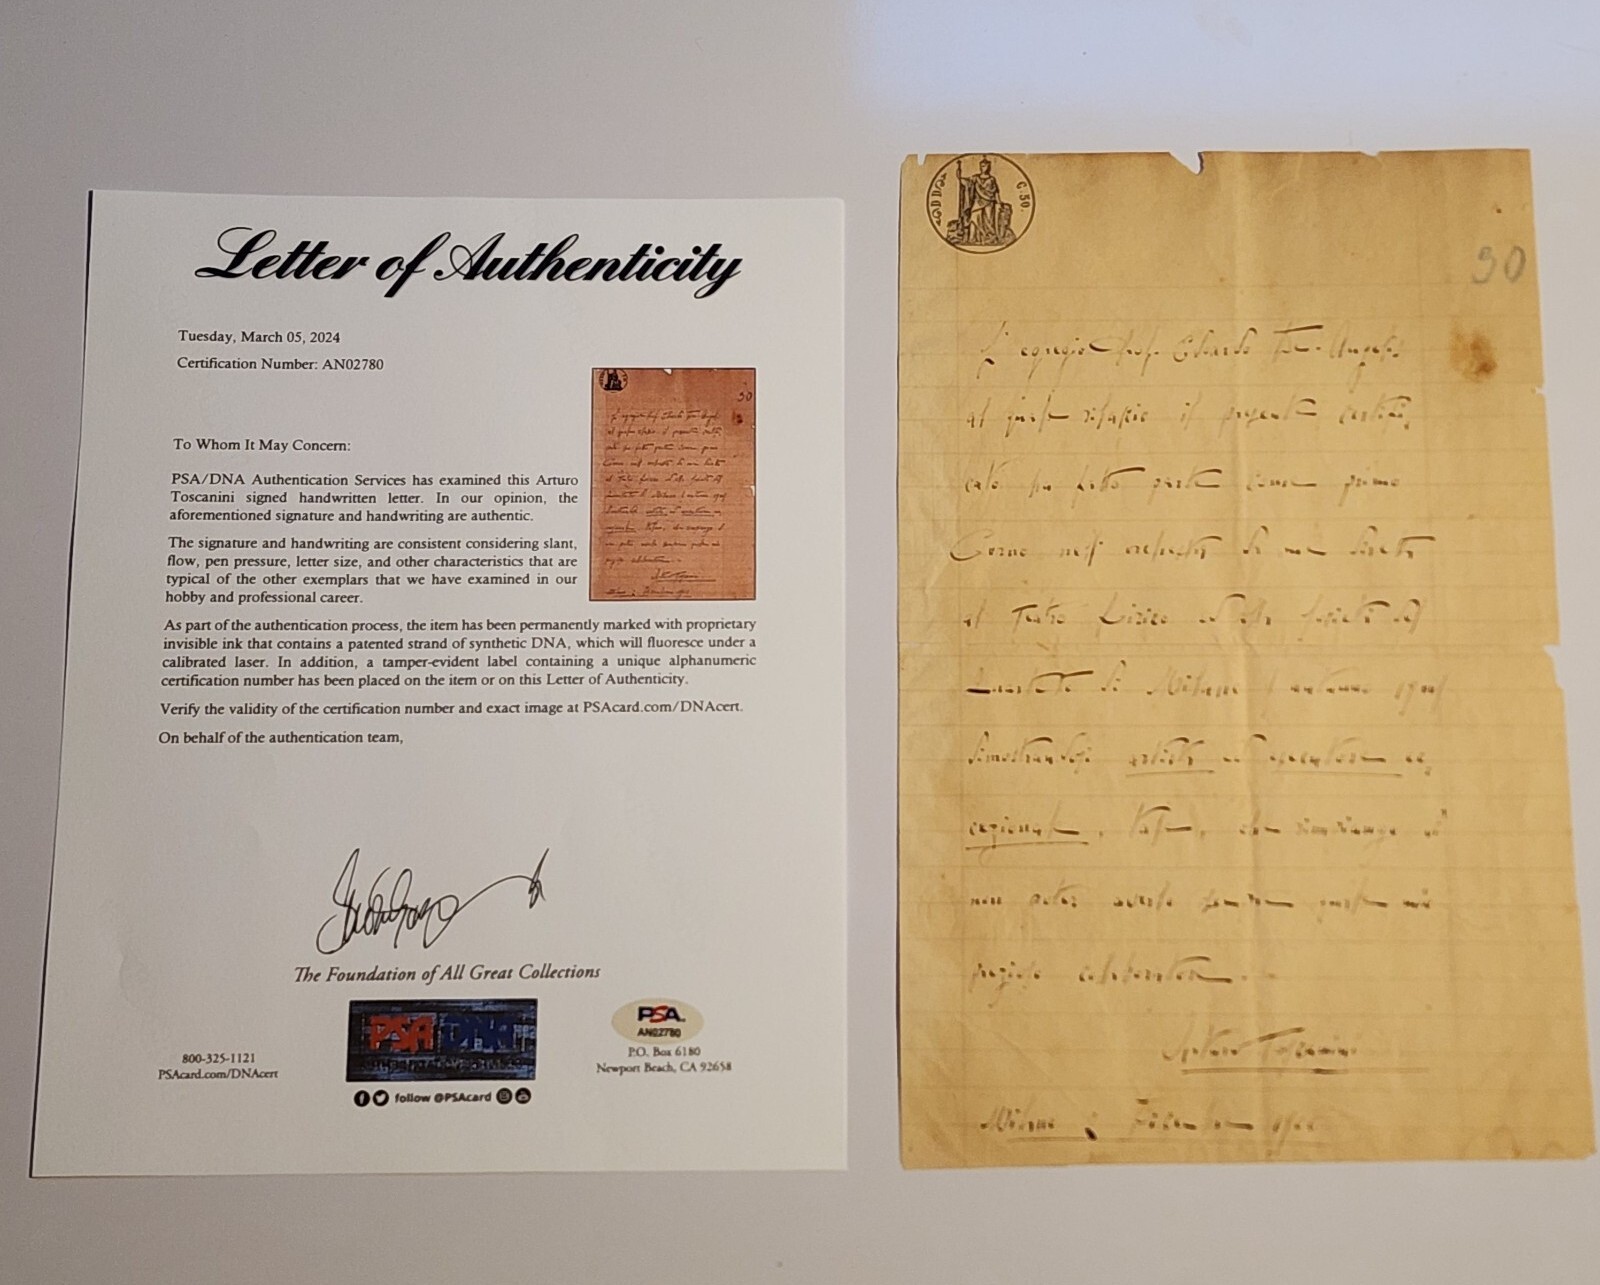 Letter of Authenticity
Tuesday, March 05, 2024
Certification Number: AN02780
To Whom It May Concern:
PSA/DNA Authentication Services has examined this Arturo
Toscanini signed handwritten letter. In our opinion, the
aforementioned signature and handwriting are authentic.
The signature and handwriting are consistent considering slant,
flow, pen pressure, letter size, and other characteristics that are
typical of the other exemplars that we have examined in our
hobby and professional career.
As part of the authentication process, the item has been permanently marked with proprietary
invisible ink that contains a patented strand of synthetic DNA, which will fluoresce under a
calibrated laser. In addition, a tamper-evident label containing a unique alphanumeric
certification number has been placed on the item or on this Letter of Authenticity.
Verify the validity of the certification number and exact image at PSAcard.com/DNAcert.
On behalf of the authentication team,
The Foundation of All Great Collections
PSA DNA
800-325-1121
PSAcard.com/DNAcert
follow @PSAcard
PSA
AN02780
P.O. Box 6180
Newport Beach, CA 92658
C. 50.
L'egregio Prof. Edoardo De-Angelis
al quale rilascio il presente certifi
cato ha fatto parte come primo
Corno nell' orchestra da me diretta
al Teatro Lirico e alla Società del
Quartetto di Milano
dimostrandosi artista ed esecutore ec
cezionale
non poter averlo sempre quale mio
prezioso collaboratore.
Arturo Toscanini
Milano